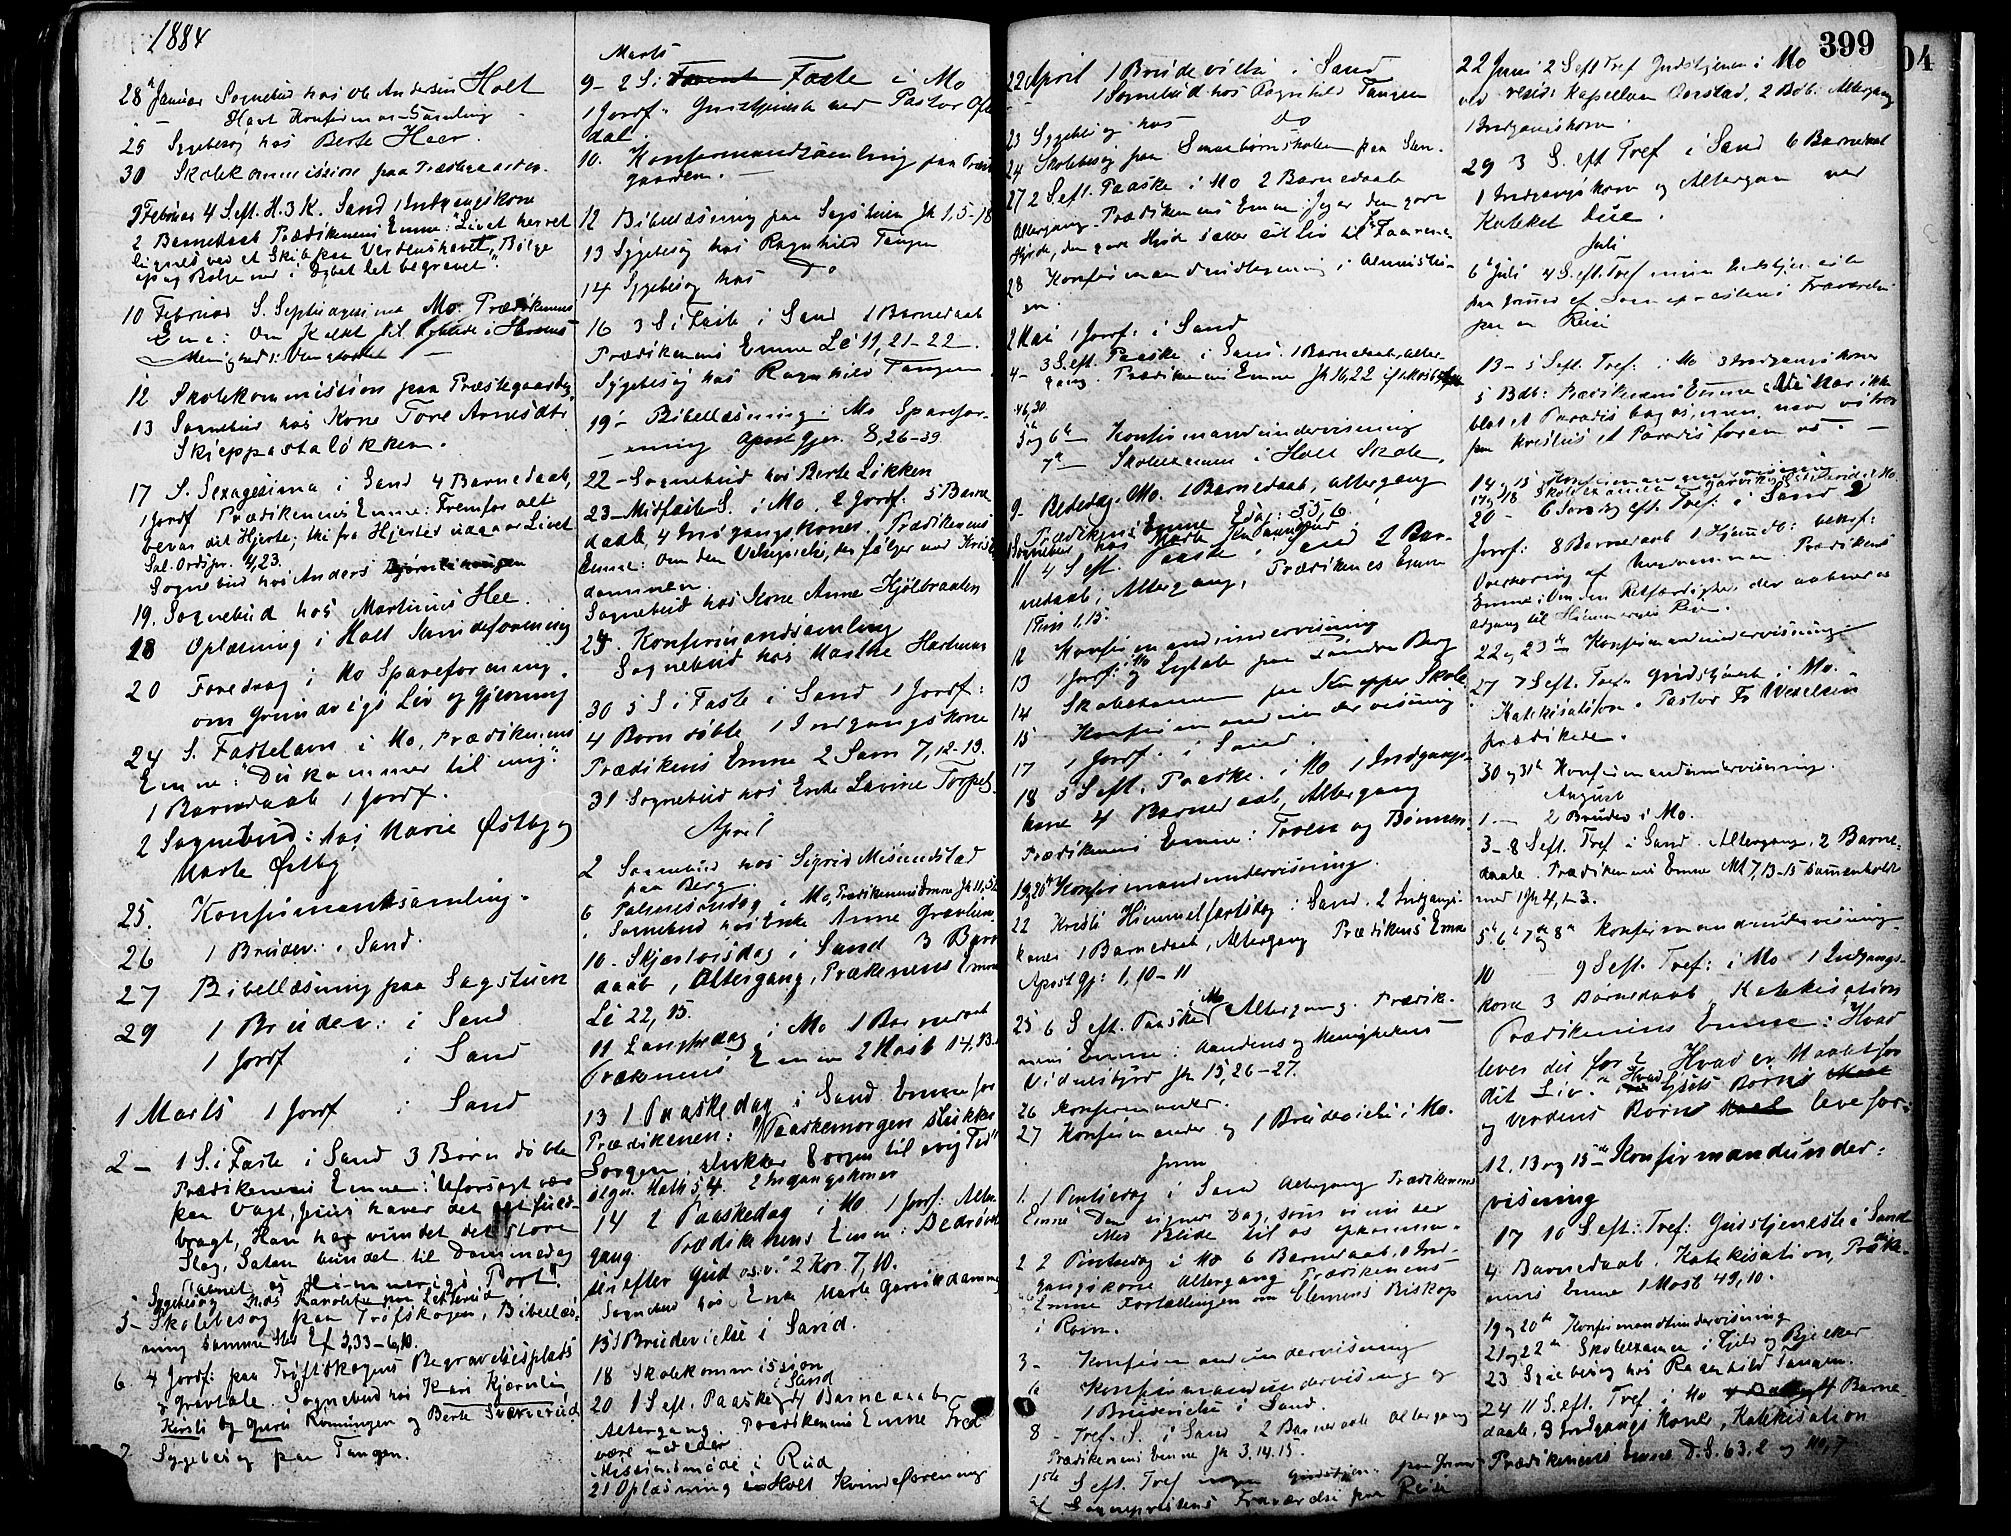 1884
28de Januar Sognebud hos Ole Andersen Holt
Havt Konfirmant-Samling
25 Sygebesøg hos Berte Heer
30 Skolekommission paa Præstegaarden.
3 Februar 4 S. eft. H. 3 K. Sand 1 Indgangskone
2 Barnedaab Prædikenens Emne: "Livet her vel
lignes ved et Skib paa Verdenshavet, Bølge
op og Bølge ned i Dybet let begravet".
10 Februar S. Septuagesima Mo. Prædikenens
Emne: Om Kaldet til Arbeide i Herrens
Menighed: Vingaarden
12 Skolekommission paa Præstegaarden
13 Sognebud hos Kone Tore Arnesdtr
Skjeppestaløkken.
17 S. Sexagesima i Sand 4 Barnedaab,
1 Jordf Prædikenens Emne: Fremfor alt
bevar dit Hjerte; thi fra Hjertet udgaar Livet
Sal. Ordspr. 4,23.
Sognebud hos Anders
19. Sognebud hos Martinus Hee.
18 Oplæsning i Holt Kvindeforening
20 Foredrag i Mo Spareforening
om Grundvigs Liv og Gjerning
24 S. Fastelavn i Mo, Prædikenens
Emne: "Du kommer til mig".
1 Barnedaab 1 Jordf.
2 Sognebud: hos Marie Østby og
Marte Østby
25. Konfirmantsamling.
26 1 Brudev. i Sand.
27 Bibellæsning paa Sagstuen
29 1 Brudev. i Sand
1 Jordf i Sand
1 Marts 1 Jordf i Sand
2 – 1 S. i Faste i Sand 3 Børn døbte
Prædikenens Emne: "Uforsagt vær
paa Vagt, Jesus haver det fuld-
bragt, Han har vundet det store
Slag, Satan bundet til Dommedag
aabnet os Himmerigs Port".
Sygebesøg hos
5 – Skolebesøg paa Trøfskogen, Bibellæs-
ning samme Sted Ef 5,33–6,10.
6 4 Jordf: paa Trøftskogens Begravelsesplads
og Gravtale. Sognebud hos Kari Kjernli,
Kirsti og Guro Rønningen og Berte Sværerud
7 Sygebesøg paa Tangen.
Marts
9 – 2 S. i Faste i Mo
1 Jordf. Gudstjeneste ved Pastor Ofte
dal
10. Konfirmandsamling paa Præste
gaarden. –
12 Bibellæsning paa Sagstuen Jh 1,5–18
13 Sygebesøg hos Ragnhild Tangen
14 Sygebesøg hos Do
16 3 S i Faste i Sand 1 Barnedaab
Prædikenens Emne Lc 11, 21–22.
Sygebesøg hos Ragnhild Tangen
19 – Bibellæsning i Mo Sparefor-
ening Apost Gjer. 8, 26–39
22 – Sognebud hos Berte Løkken
23 – Midfaste S. i Mo. 2 Jordf. 5 Barne
daab, 4 Indgangskoner. Prædikenens
Emne: Om den Velsignelse, der følger med Kristen
dommen.
Sognebud hos Kone Anne Kjølbraaten
24 Konfirmandsamling
Sognebud hos Marthe
30 5 S i Faste i Sand 1 Jordf:
4 Børn døbte 1 Indgangskone
Prædikens Emne 2 Sam 7, 12–13.
31 Sognebud hos Enke Lavine Torpet
April
2 Sognebud hos Sigrid Misundstad
paa Berg.
6 Palmesøndag i Mo, Prædikenens Emne Jh 11,
Sognebud hos Enke Anne
10. Skjærtorsdag i Sand 3 Barne
daab, Altergang, Prækenens Emne
Lc 22, 15.
11 Langfredag i Mo 1 Barnedaab
Prækenens Emne 2 Mosb 14, 13.
13 1 Paaskedag i Sand. Emne for
Prædikenen: "Paaskemorgen slukker
Sorgen, slukker Sorgen til evig Tid"
2 Indgangskoner
14 2 Paaskedag i Mo 1 Jordf: Alter
gang. Prædikenens Emne: Bedrøvel
sen efter Gud o.s.v. 2 Kor. 7, 10.
Sognebud hos Enke Marte
15 1 Brudevielse i Sand.
18 Skolekommission
20 1 S eft. Paaske i Sand 4 Barnedaab
Altergang. Prædikenens Emne Fred
være med eder
Missionsmøde i Rud
21 Oplæsning i Holt Kvindeforening
399
22 April 1 Brudevielse i Sand
1 Sognebud hos Ragnhild Tangen
23 Sygebesøg hos Do
24 Skolebesøg paa Smaabørnskolen paa San.
27 2 S eft. Paaske i Mo 2 Barnedaab
Altergang. Prædikenens Emne: Jeg er den gode
Hyrde, den gode Hyrde sætter sit Liv til for Faarene.
28 Konfirmandindtegning i Almuesko-
en.
2 Mai 1 Jordf: i Sand
4 – 3 S. eft. Paaske i Sand. 1 Barnedaab, Alter-
gang. Prædikenens Emne Jh 16,22
46,30
5 og 6te Konfirmandundervisning
7de Skoleexamen i Holt Skole.
9 – Bededag. Mo. 1 Barnedaab, Altergang
Prædikenens Emne Esaj: 55, 6.
Sognebud hos Marte
11 4 S eft. Paaske i Sand 2 Bar-
nedaab, Altergang, Prædikenens Emne
1 Tim 1,15.
12 Konfirmandundervisning
13 1 Jordf: i Mo og Ligtale paa søndre Berg
14 Skoleexamen paa Knapper Skole
15 Konfirmandundervisning
17 1 Jordf. i Sand
18 5 S eft. Paaske i Mo 1 Indgangs-
kone 4 Barnedaab, Altergang
Prædikenens Emne: Troen og Bønnen.
19 og 20de Konfirmandundervisning.
22 Kristi Himmelfartsdag i Sand. 2 Indgangs-
koner 1 Barnedaab, Altergang Prædikens Emne
Apost Gj: 1, 10–11
25 6 S eft. Paaske i Mo Altergang. Prædik-
nens Emne: Aandens og Menighedens
Vidnesbyrd Jh 15, 26–27.
26 Konfirmander.
27 Konfirmander og 1 Brudevielse i Mo.
Juni
1. 1 Pintsedag i Sand Altergang Prædikenens
Emne "Den signede Dag, som vi nu ser
Med Blide til os opkomme".
2 2 Pintsedag i Mo 6 Barnedaab, 1 Ind-
gangskone Altergang Prædikenens
Emne Fortællingen om Clemens Biskop
i Rom.
3 – Konfirmandundervisning
6 Konfirmandundervisning og
1 Brudevielse i Sand.
8 – Tref. S. i Sand 2 Barnedaab Altergang
Prædikenens Emne Jh 3. 14. 15.
15de 1 S eft. Tref ingen Gudstjen. paa Grund
af Sognepræstens Fraværelse paa Reise
22 Juni 2 S eft Tref Gudstjeneste i Mo
ved resid: Kapellan Oerstad, 2 Bdb. Altergang
1 Indgangskone.
29 3 S. eft Tref i Sand 6 Barnedaab
1 Indgangskone og Altergang ved
Kateket Due.
Juli
6te Juli 4 S. eft. Tref ingen Gudstjeneste
paa Grund af Sognepræstens Fraværelse
paa en Reise
13 – 5 S eft. Tref. i Mo 3 Indgangskoner
5 Bdb: Prædikenens Emne: Vi har ikke
blot et Paradis bag os, men, naar vi tror
paa Kristus et Paradis foran os. –
14 og 15 Konfirmandundervisning
17 og 18 Skoleexamen i
20 – 6 Søndag eft. Tref. i Sand 2
Jordf: 8 Barnedaab 1 Hjemdb: bekræf:
Overhøring af Ungdommen. Prædikens
Emne: Om den Retfærdighed, der aabner os
Adgang til Himmeriges Rige.
22 og 23de Konfirmandundervisning
27 7 S eft. Tref. Gudstjeneste i Mo.
Katekisation. Pastor Fr Wexelsen
prædikede.
30 og 31te Konfirmandundervisning.
August
1. – 2 Brudev i Mo.
3 – 8 S eft. Tref i Sand. Altergang, 2 Barne-
daab. Prædikenens Emne Mt 7, 13–15 sammenholdt
med 1 Jh 4, 1–3.
5te 6te 7de og 8de Konfirmandundervisning
10 9 S eft. Tref: i Mo 1 Indgangs-
kone 3 Barnedaab Katekisation
Prædikenens Emne: Hvad
lever du for? Hvad er Maalet for
dit Liv. Hvad Lysets Børn
og Verdens Børn leve for.
12, 13 og 15de Konfirmandunder-
visning
17 10 S eft: Tref: Gudstjeneste i Sand
4 Barnedaab, Katekisation, Prædike-
nens Emne 1 Mosb 49, 10.
19 og 20de Konfirmandundervisning
21 og 22de Skoleexamen i Fjeld og Bjelker
23 Sygebesøg hos Ragnhild Tangen.
24 11 S. eft. Tref. i Mo 4 Barne-
daab, 3 Indgangskoner, Katekisation
Prædikenens Emne D. S. 63, 2 og 110, 7